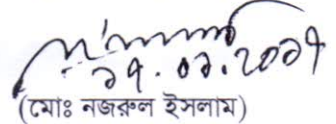 ১৭.০১.২০১৭
(মোঃ নজরুল ইসলাম)